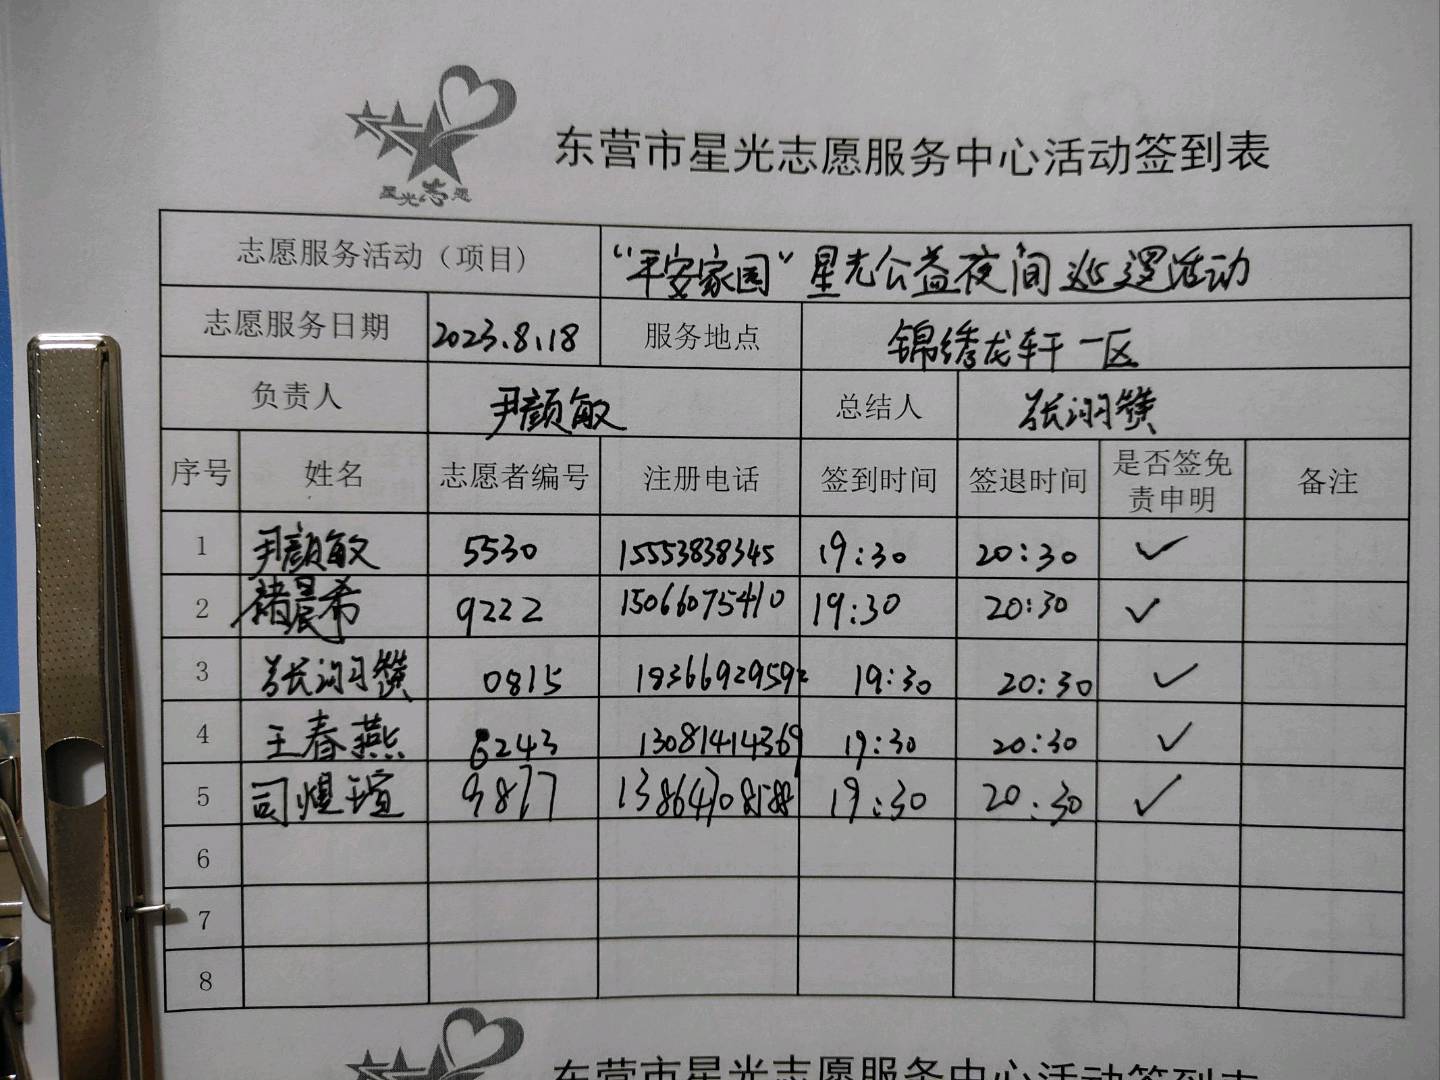 星光志愿
东营市星光志愿服务中心活动签到表
志愿服务活动（项目） “平安家园”星光公益夜间巡逻活动
志愿服务日期 2023.8.18 服务地点 锦绣龙轩一区
负责人 尹颜敏 总结人 张
序号 姓名 志愿者编号 注册电话 签到时间 签退时间 是否签免责申明 备注
1 尹颜敏 5530 15553838345 19:30 20:30 ✓
2 褚晨希 9222 15066075410 19:30 20:30 ✓
3 张 0815 19:30 20:30 ✓
4 王春燕 6243 13081414369 19:30 20:30 ✓
5 司煜瑄 9877 19:30 20:30 ✓
6
7
8
东营市星光志愿服务中心活动签到表